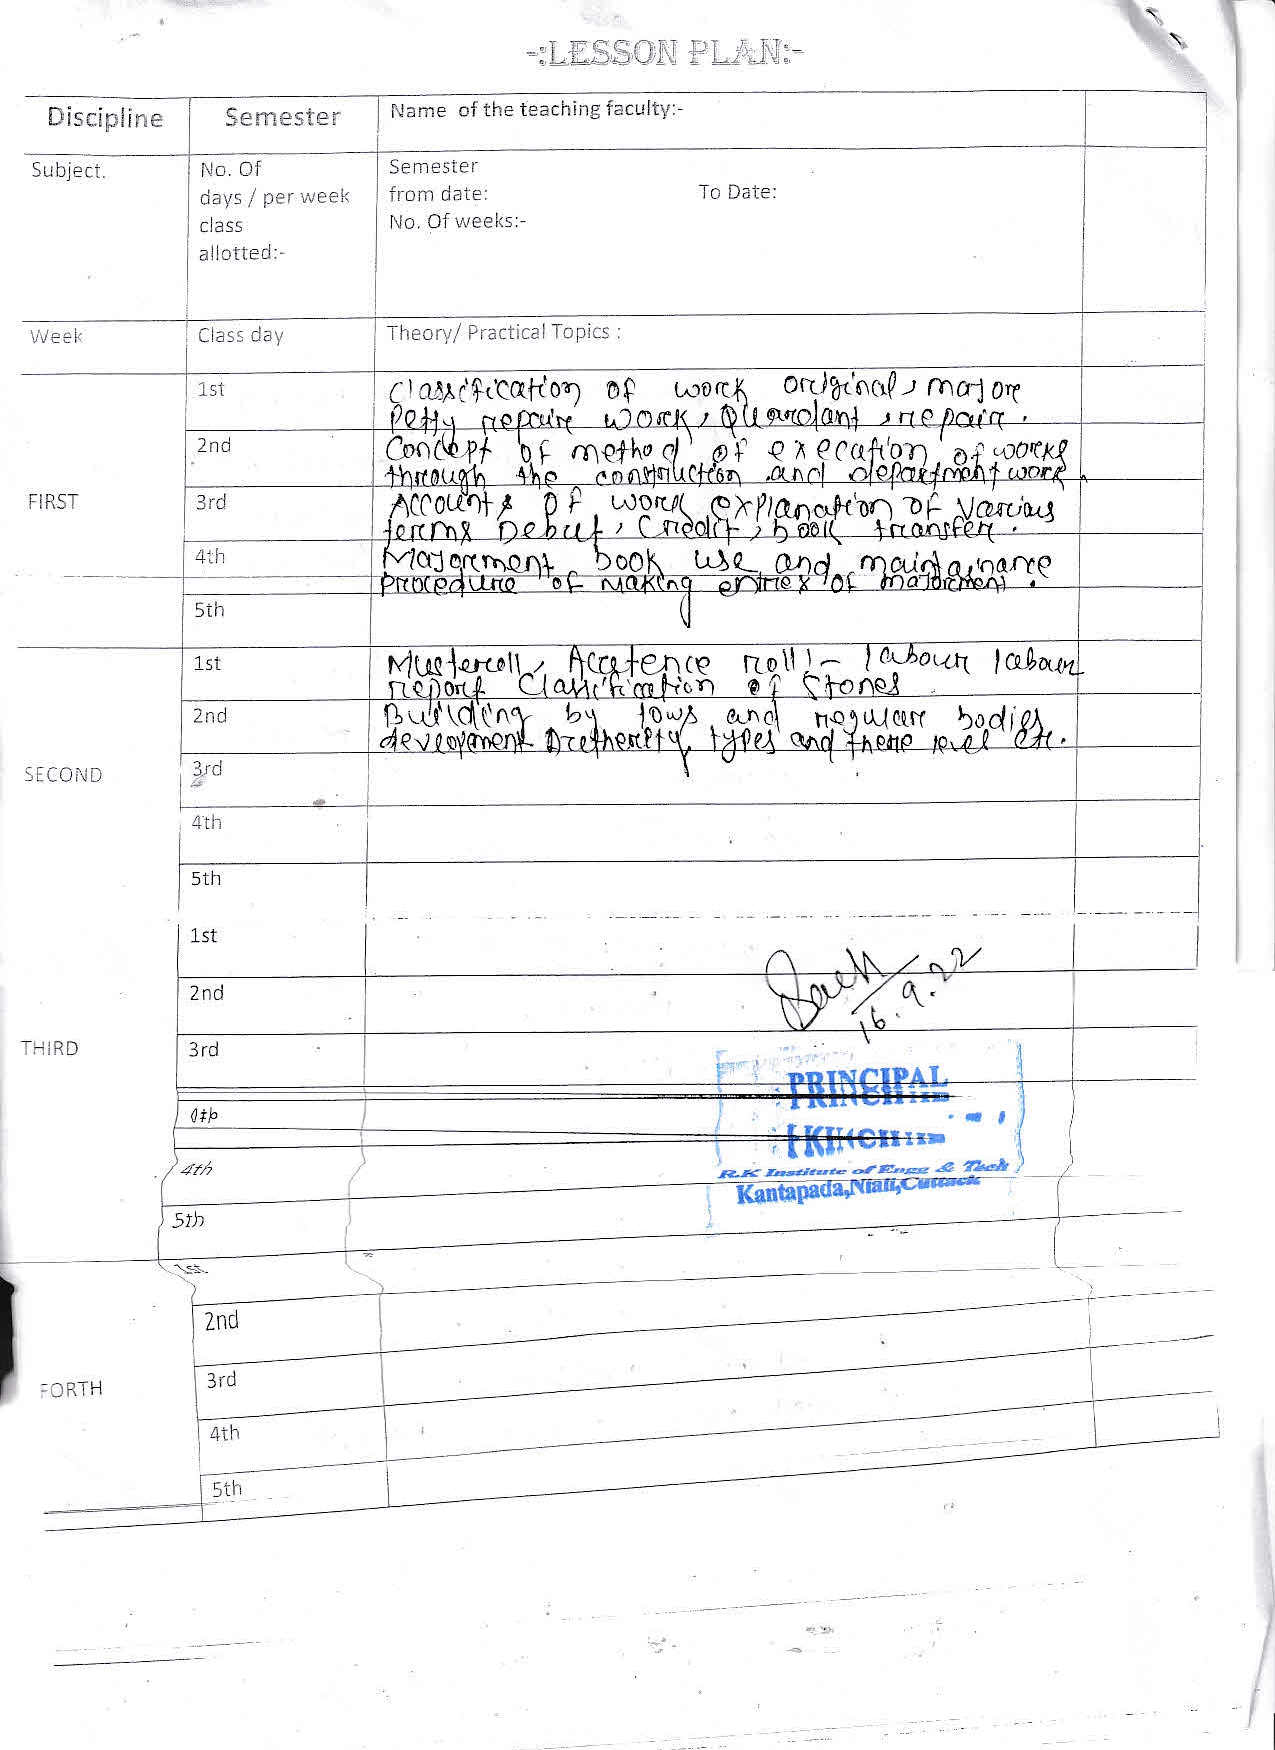 -:LESSON PLAN:-
Discipline Semester Name of the teaching faculty:-
Subject. No. Of
days / per week
class
allotted:-
Semester
from date: To Date:
No. Of weeks:-
Week Class day Theory/ Practical Topics :
FIRST
1st Classification of work original, majore
Petty repaire work, Quardant, repair.
2nd Concept of method of execation of works
through the construction and department work.
3rd Accounts of work explanation of various
terms Debut, Credit, book transfer.
4th Majorement book use and maintainance
procedure of making entries of majorement.
5th
SECOND
1st Musterroll, roll:- labour labour
report Classification of Stones
2nd Building by lows and regulare bodies
development types and there level etc.
3rd
4th
5th
THIRD
1st
2nd
16.9.22
3rd
PRINCIPAL
4th
R.K Institute of Engg & Tech
Kantapada,Niali,Cuttack
5th
FORTH
1st
2nd
3rd
4th
5th